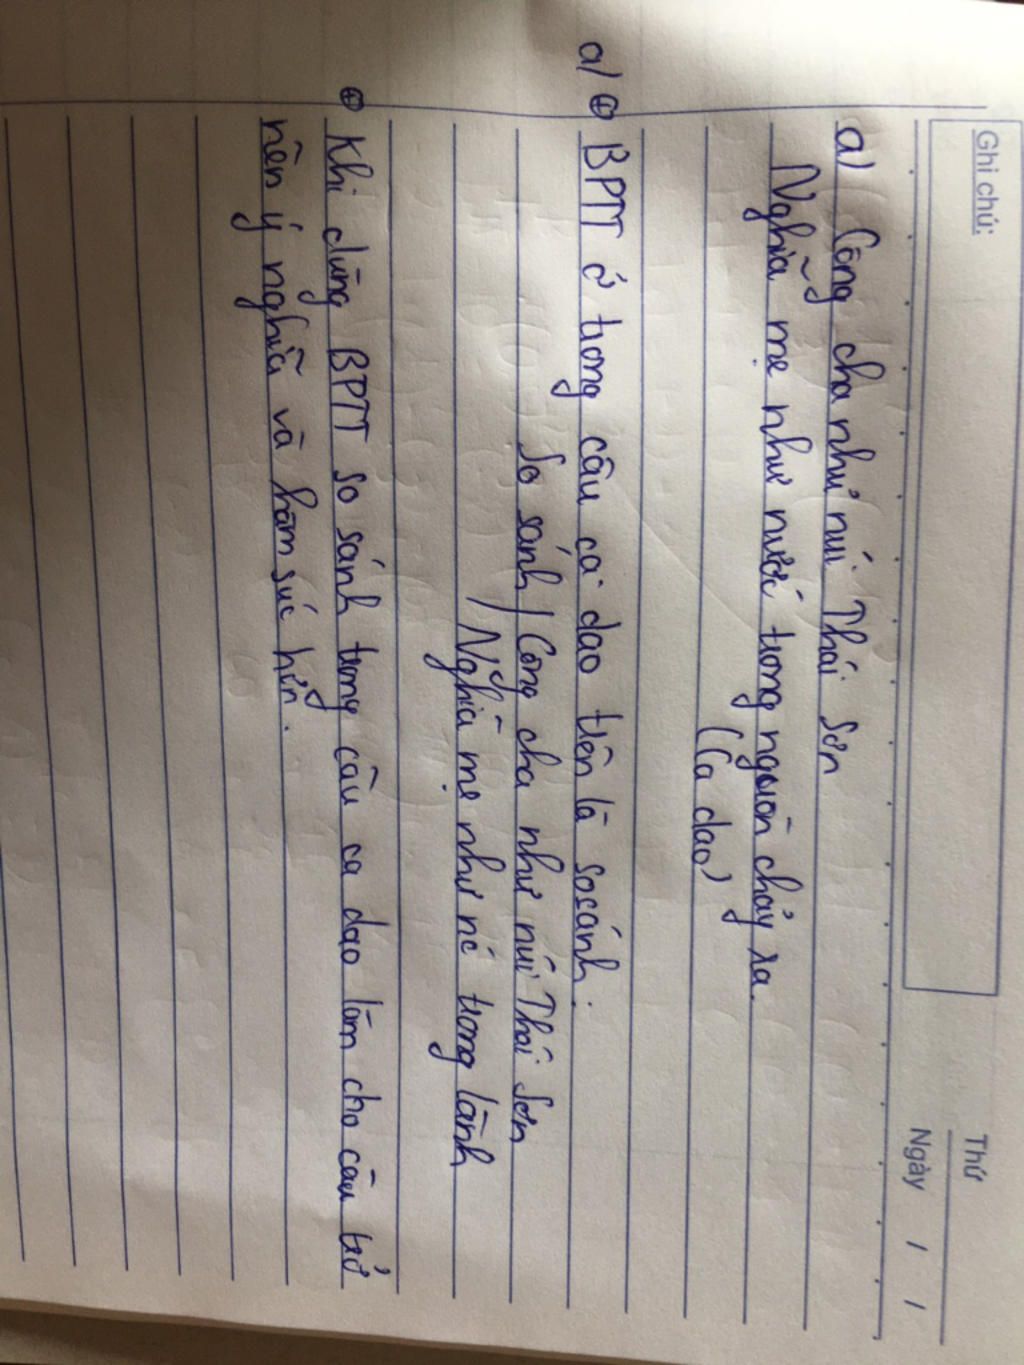 Ghi chú:
Thứ
Ngày / /
a) Công cha như núi Thái Sơn
Nghĩa mẹ như nước trong nguồn chảy ra.
(Ca dao)
a) ⊕ BPTT ở trong câu ca dao trên là so sánh:
So sánh / Công cha như núi Thái Sơn
/ Nghĩa mẹ như nc trong lành
⊕ Khi dùng BPTT so sánh trong câu ca dao làm cho câu trở
nên ý nghĩa và hàm súc hơn.